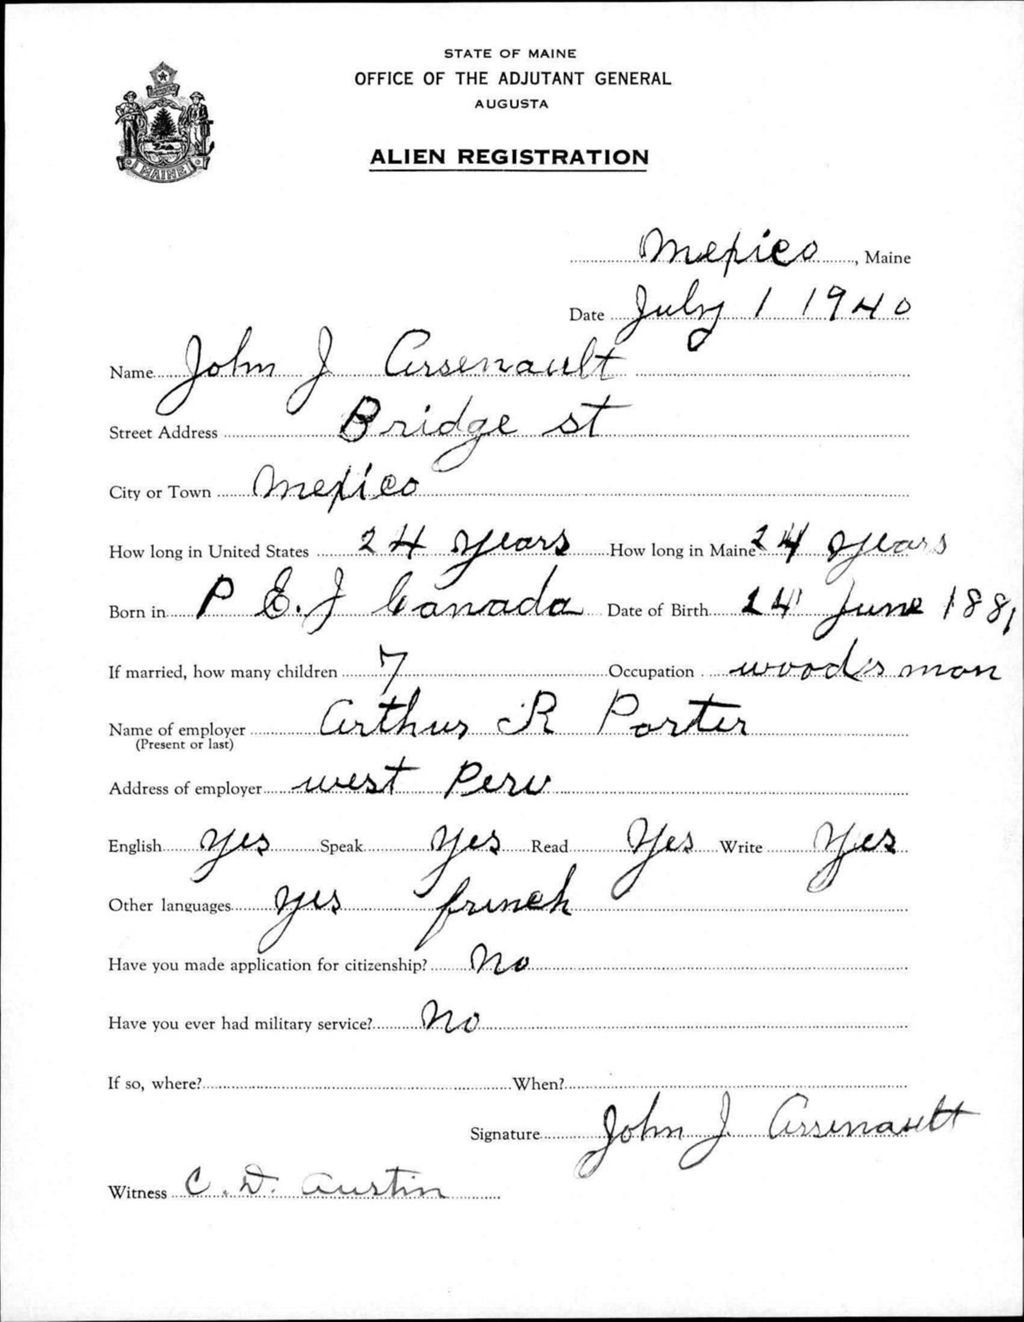 STATE OF MAINE
OFFICE OF THE ADJUTANT GENERAL
AUGUSTA
ALIEN REGISTRATION
MAINE
Mexico, Maine
Date July 1 1940
Name John J Arsenault
Street Address Bridge st
City or Town Mexico
How long in United States 24 years How long in Maine 24 years
Born in P E. J Canada Date of Birth 24 June 1881
If married, how many children 7 Occupation woodsman
Name of employer Arthur R Porter
(Present or last)
Address of employer west Peru
English yes Speak yes Read Yes Write Yes
Other languages yes french
Have you made application for citizenship? No
Have you ever had military service? No
If so, where? When?
Signature John J Arsenault
Witness C. D. Austin